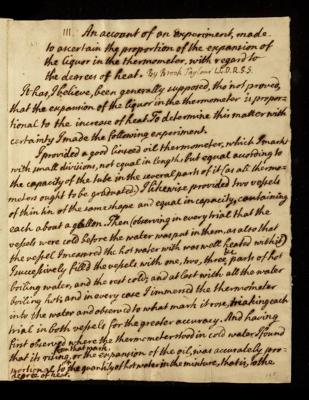 III. An account of an Experiment, made
to ascertain the proportion of the expansion of
the liquor in the thermometer, with regard to
the degrees of heat. By Brook Taylour LL.D.R.S.S.
It has, I believe, been generally supposed, tho' not proved,
that the expansion of the liquor in the thermometer is propor-
tional to the increase of heat. To determine this matter with
certainty I made the following experiment.
I provided a good linseed oil thermometer, which I markd
with small divisions, not equal in length, but equal according to
the capacity of the tube in the several parts of it (as all thermo-
meters ought to be graduated.) I likewise provided two vessels
of thin tin of the same shape and equal in capacity, containing
each about a gallon. Then (observing in every trial that the
vessels were cold before the water was put in them, as also that
the vessel I measured the hot water with was well heated with it)
I successively filled the vessels with one, two, three, &c parts of hot
boiling water, and the rest cold; and at last with all the water
boiling hot; and in every case I immersed the thermometer
into the water and observed to what mark it rose, making each
trial in both vessels for the greater accuracy. And having
first observed where the thermometer stood in cold water, I found
that its rising from that mark, or the expansion of the oil, was accurately pro-
portional to the quantity of hot water in the mixture, that is, to the
degree of heat.